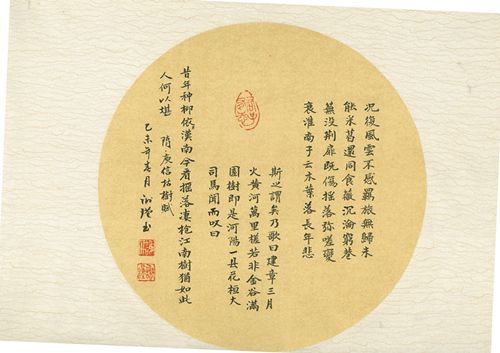 況復風雲不感羈旅無歸未
能采葛還同食薇沉淪窮巷
蕪没荆扉既傷摇落弥嗟變
衰淮南子云木葉落長年悲
斯之謂矣乃歌曰建章三月
火黄河萬里槎若非金谷滿
園樹即是河陽一縣花桓大
司馬聞而叹曰
昔年种柳依漢南今看摇落凄怆江南樹猶如此
人何以堪 隋庾信枯樹賦
乙未年春月